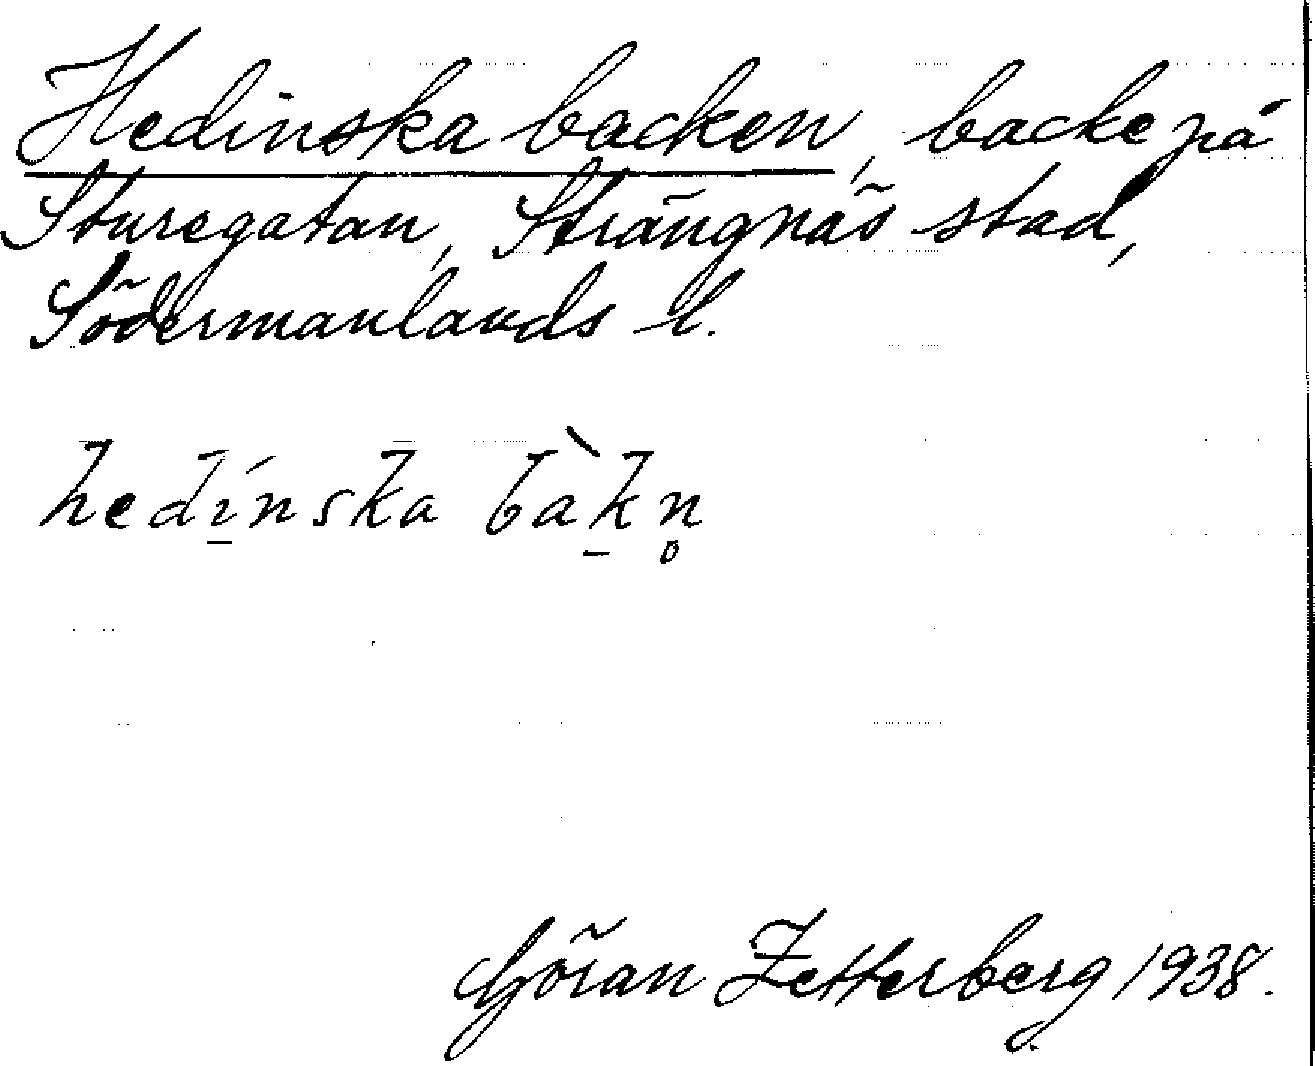 Hedinska backen, backe på
Sturegatan, Strängnäs stad,
Södermanlands l.
hedí̱nska bàḵn̥
Göran Zetterberg 1938.